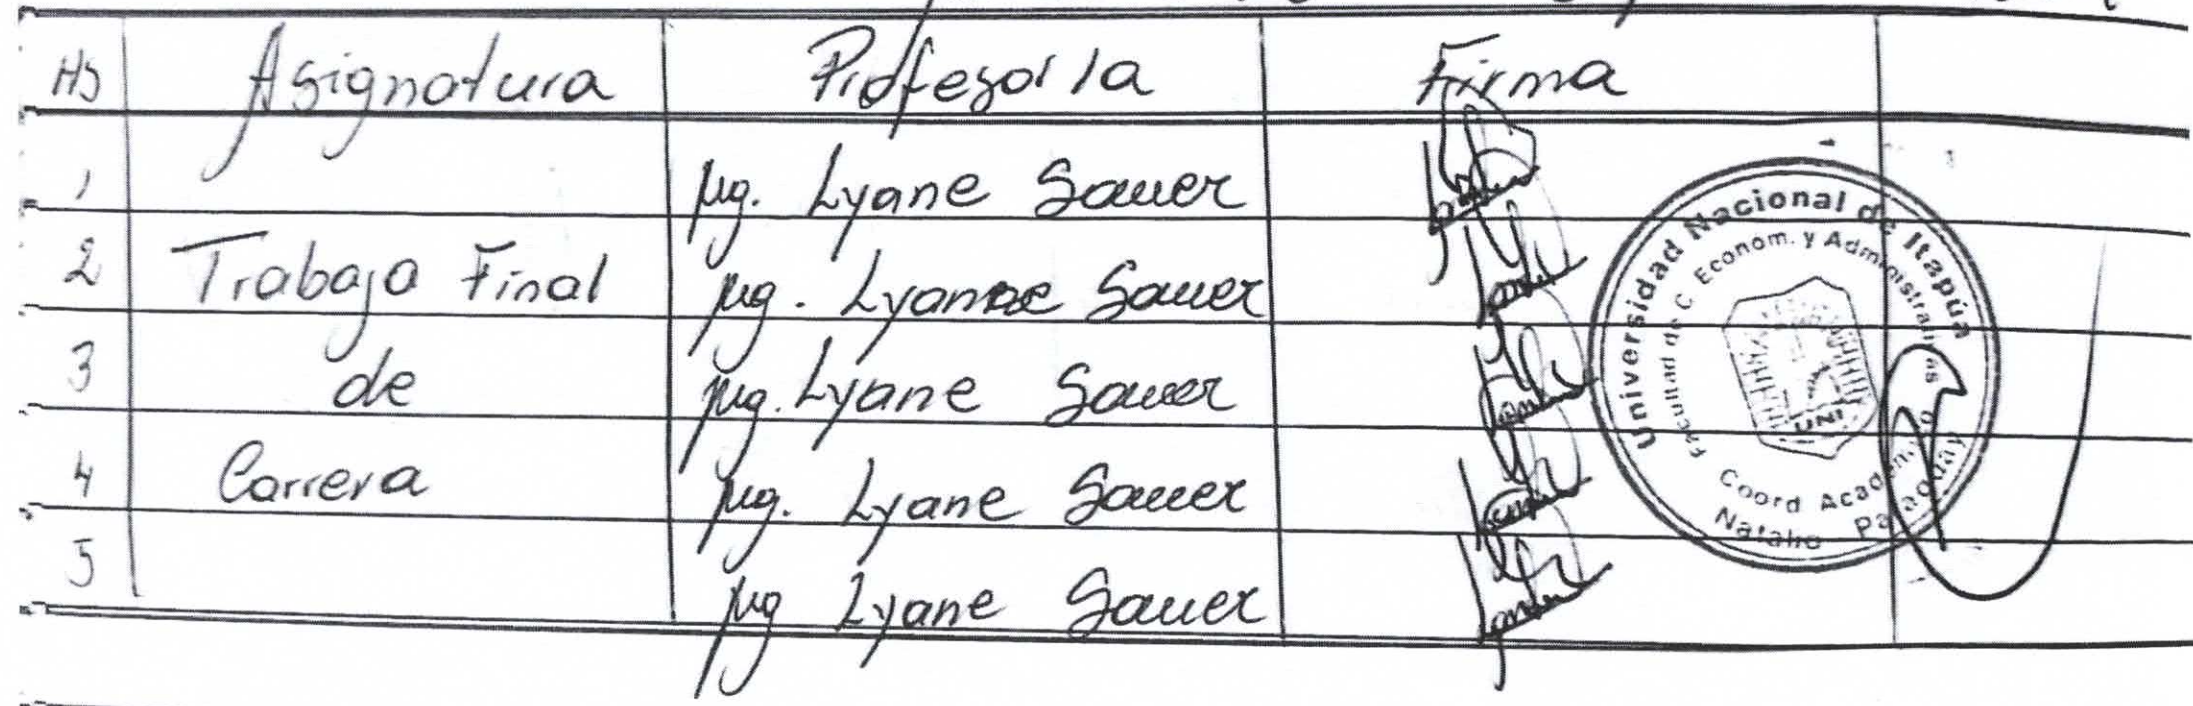 Hs Asignatura Profesor/a Firma
1 Mg. Lyane Sauer
2 Trabajo Final Mg. Lyane Sauer
3 de Mg. Lyane Sauer
4 Carrera Mg. Lyane Sauer
5 Mg Lyane Sauer
Universidad Nacional de Itapúa
Facultad de C. Econom. y Administrativas
UNI
Coord Academica
Natalio Paraguay